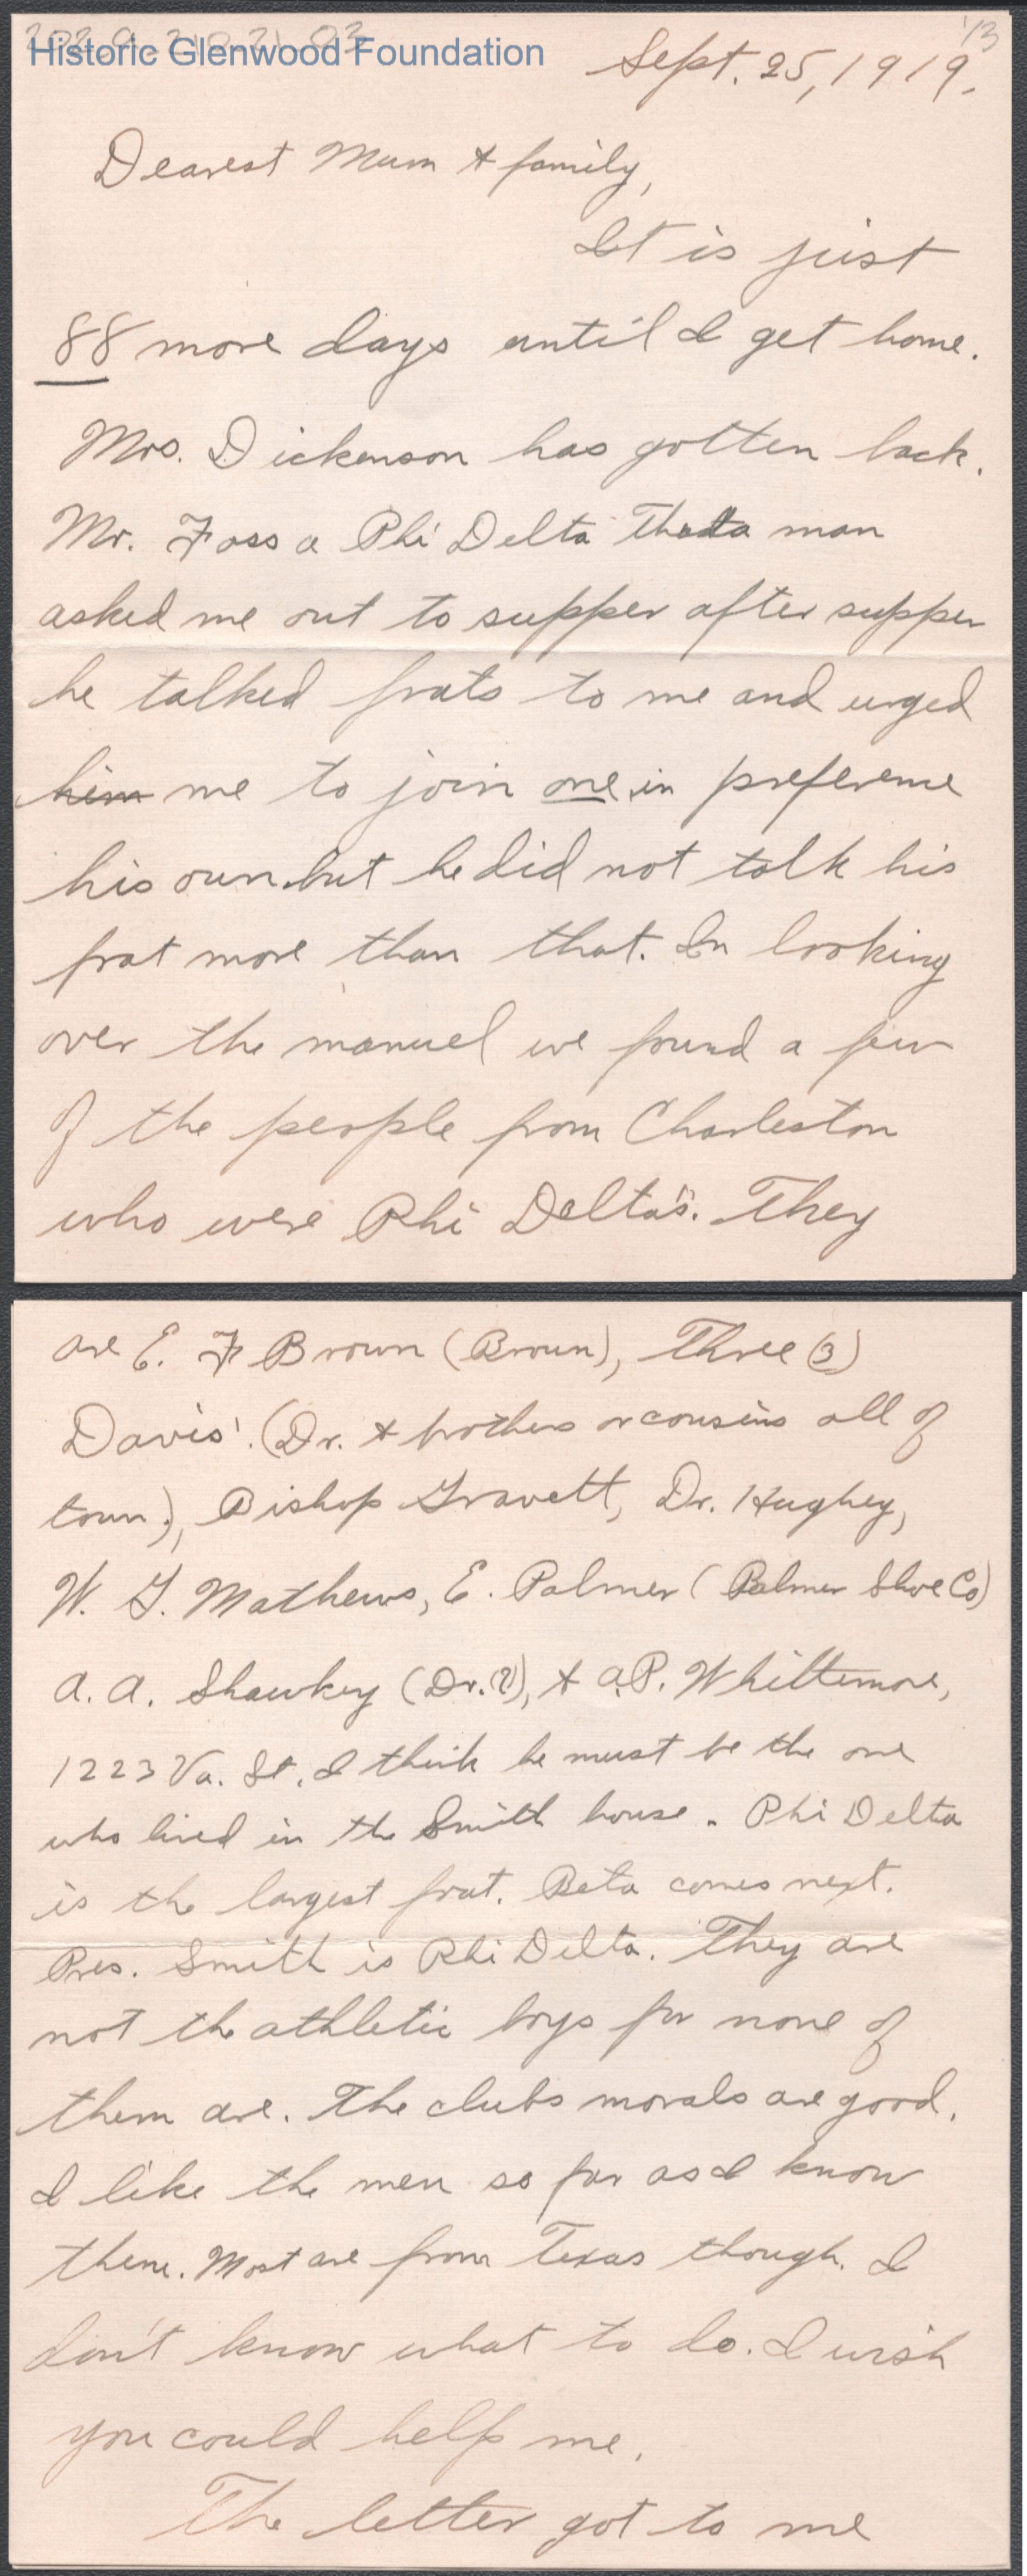 Historic Glenwood Foundation
1/3
Sept. 25, 1919.
Dearest Mum & family,
It is just
88 more days until I get home.
Mrs. Dickenson has gotten back.
Mr. Foss a Phi Delta Theta man
asked me out to supper after supper
he talked frats to me and urged
him me to join one in preference
his own but he did not talk his
frat more than that. In looking
over the manuel we found a few
of the people from Charleston
who were Phi Delta's. They
are E. F Brown (Broun), Three (3)
Davis'. (Dr. & brothers or cousins all of
town.), Bishop Gravett, Dr. Hughey,
W. G. Mathews, E. Palmer (Palmer Shoe Co)
A. A. Shawkey (Dr.(?), & A.P. Whittemore,
1223 Va. St. I think he must be the one
who lived in the Smith house. Phi Delta
is the largest frat. Beta comes next.
Pres. Smith is Phi Delta. They are
not the athletic boys for none of
them are. The clubs morals are good.
I like the men so far as I know
them. Most are from Texas though. I
don't know what to do. I wish
you could help me.
The letter got to me